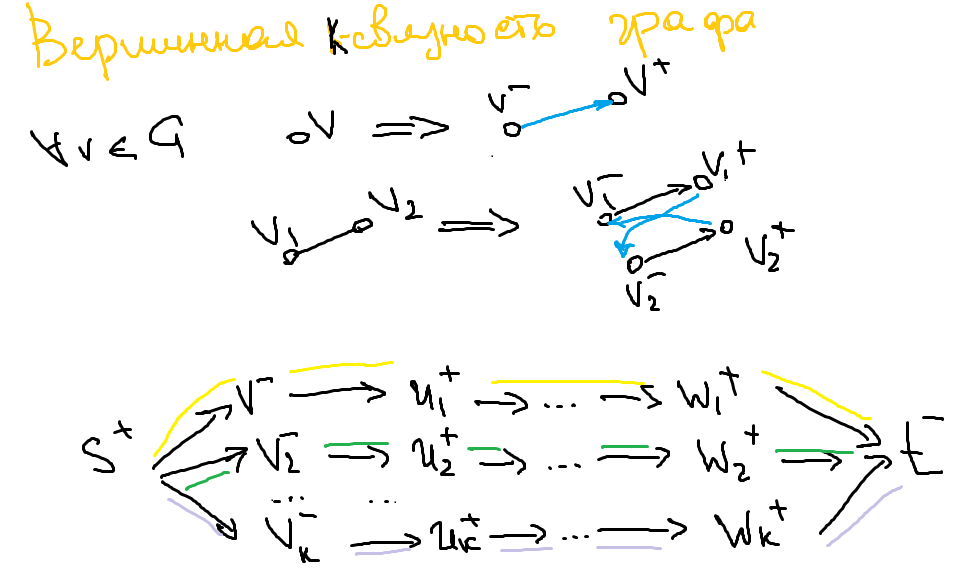 Вершинная k-связность графа
∀v ∈ G V ⟹ V⁻ V⁺
V₁ V₂ ⟹ V₁⁻ V₁⁺ V₂⁻ V₂⁺
V⁻ → u₁⁺ → ... → W₁⁺
S⁺ V₂⁻ → u₂⁺ → ... → W₂⁺ → t⁻
... ...
Vₖ⁻ → uₖ⁺ → ... → Wₖ⁺